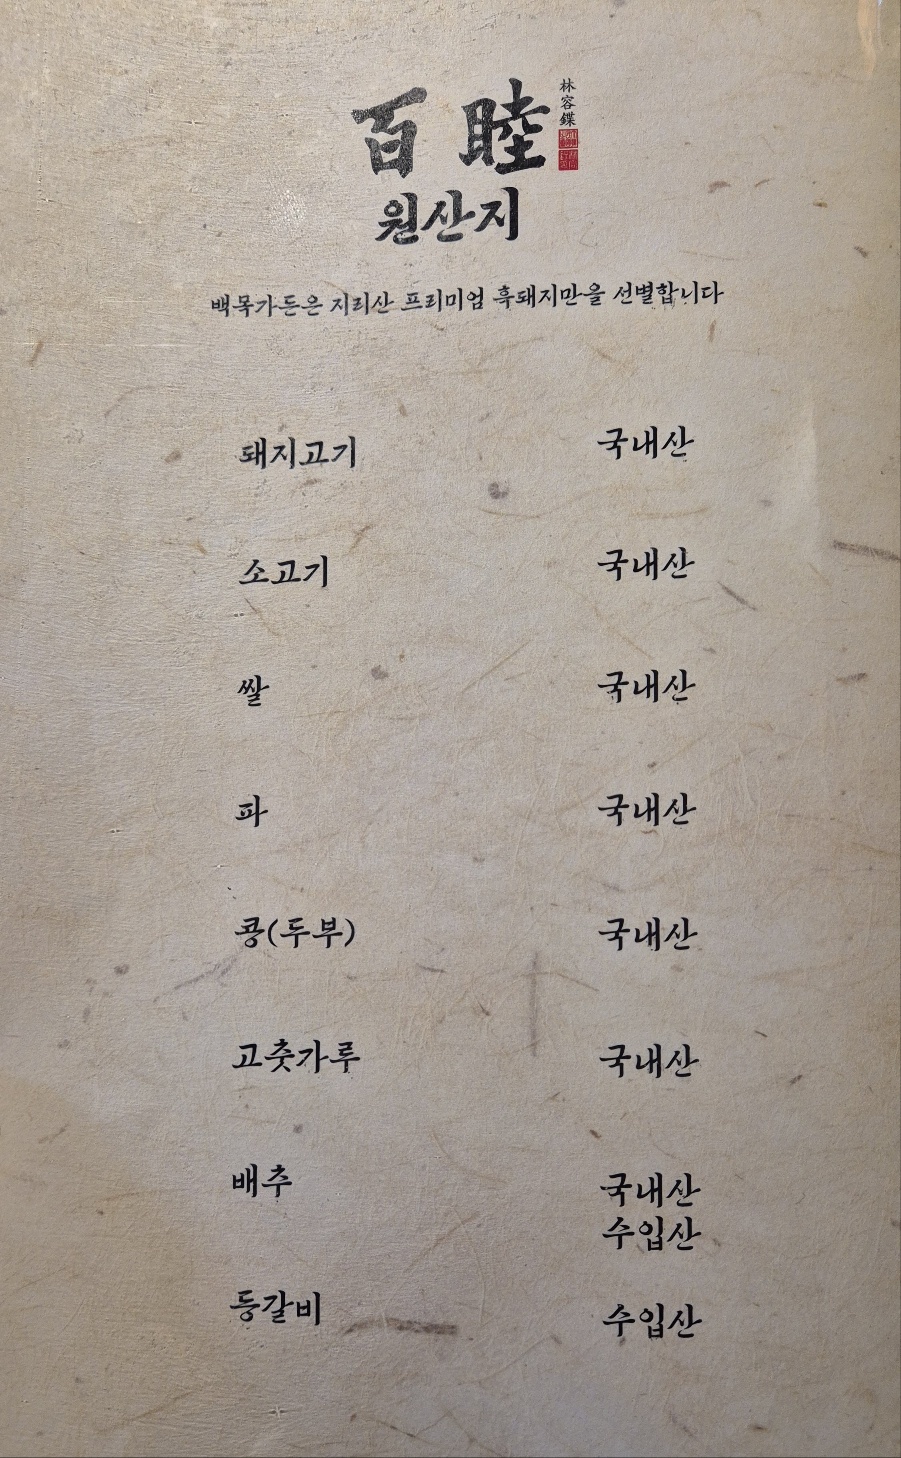 百睦
林容鍱
원산지
백목가든은 지리산 프리미엄 흑돼지만을 선별합니다
돼지고기 국내산
소고기 국내산
쌀 국내산
파 국내산
콩(두부) 국내산
고춧가루 국내산
배추 국내산
수입산
등갈비 수입산